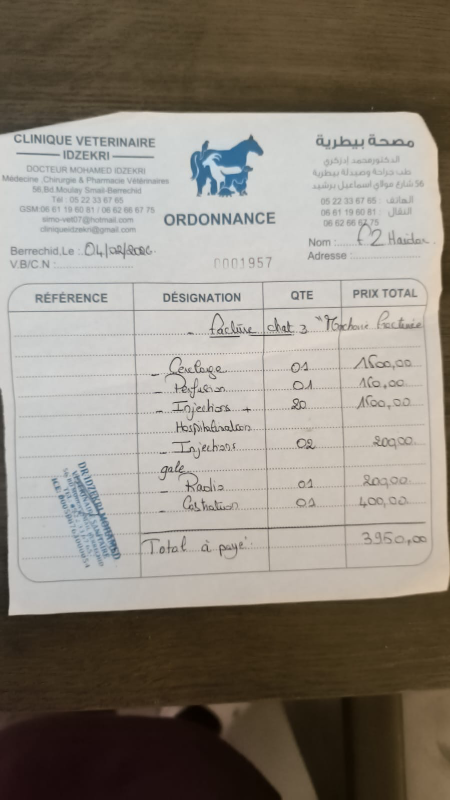 CLINIQUE VETERINAIRE
IDZEKRI
DOCTEUR MOHAMED IDZEKRI
Médecine ,Chirurgie & Pharmacie Vétérinaires
56,Bd.Moulay Smail-Berrechid
Tél : 05 22 33 67 65
GSM:06 61 19 60 81 / 06 62 66 67 75
simo-vet07@hotmail.com
cliniqueidzekri@gmail.com
مصحة بيطرية
الدكتور محمد إدزكري
طب جراحة وصيدلة بيطرية
56 شارع مولاي اسماعيل برشيد
الهاتف : 05 22 33 67 65
النقال : 06 61 19 60 81
06 62 66 67 75
ORDONNANCE
Berrechid,Le : 04/02/2026
Nom :
V.B/C.N :
0001957
Adresse :
RÉFÉRENCE DÉSIGNATION QTE PRIX TOTAL
- Facture chat 3 "Machoire Fracturée
- Cerclage 01 1500,00
- Perfusion 01 150,00
- Injections + 20 1500,00
Hospitalisation
- Injections 02 200,00
gale
- Radio 01 200,00
- Castration 01 400,00
Total à payé: 3950,00
DR IDZEKRI MOHAMED